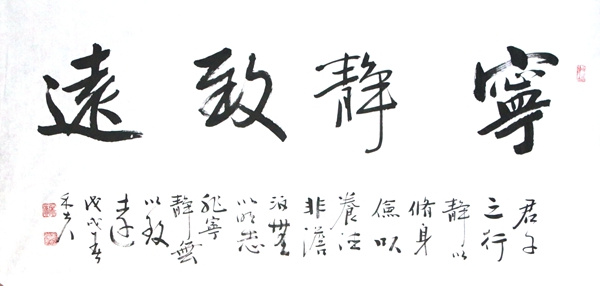 寧静致遠
君子
之行
静以
脩身
儉以
養德
非澹
泊無
以明志
非寧
静無
以致
遠
戊戌春